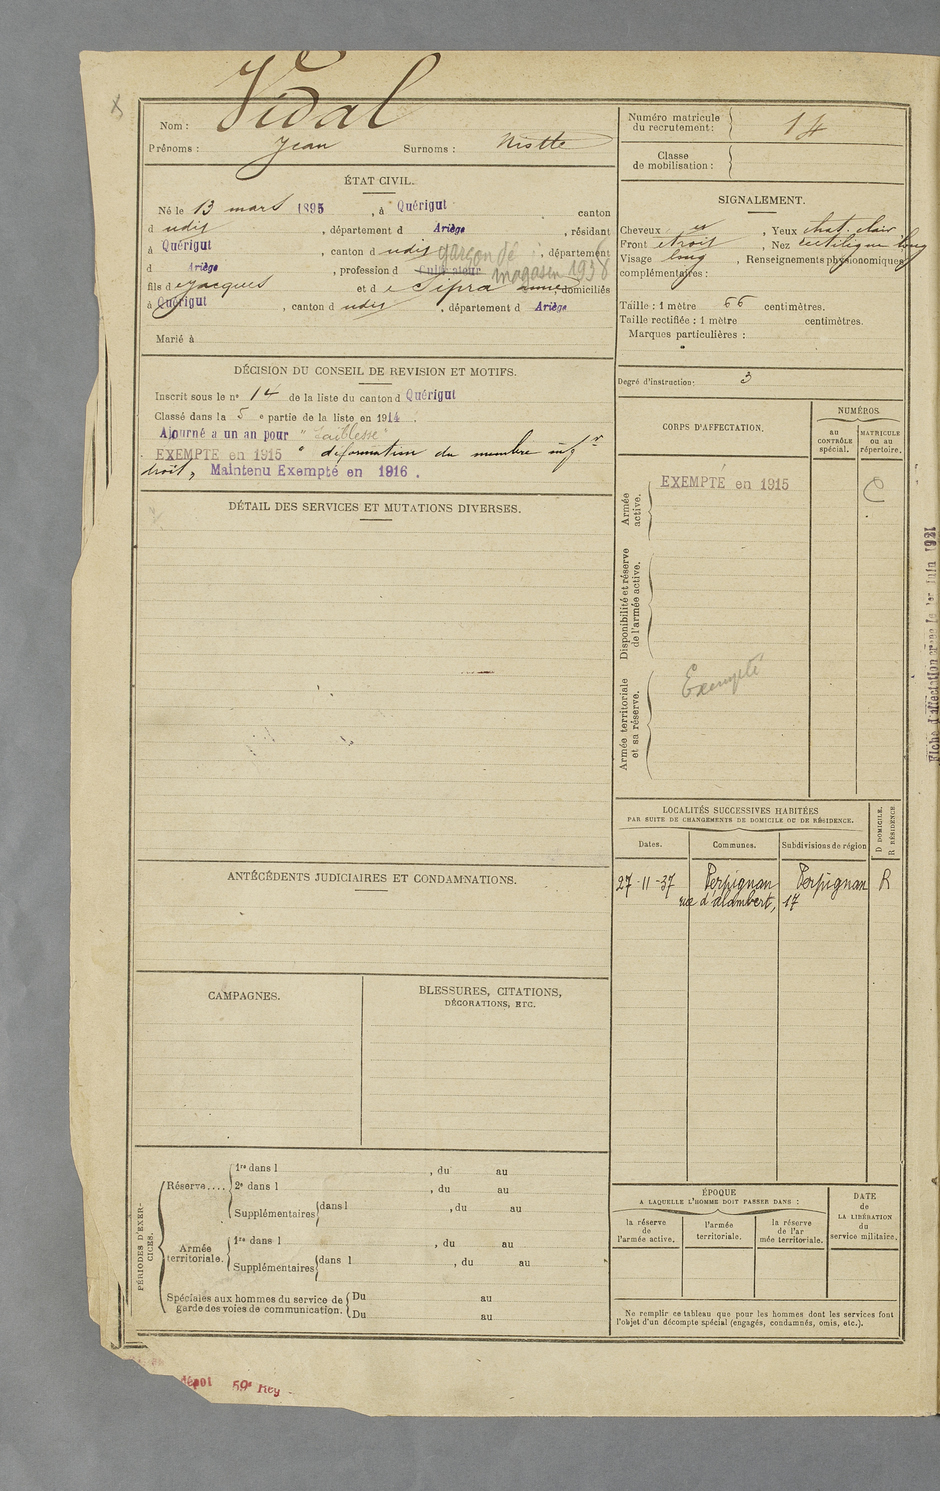 Vidal
Nom :
Prénoms : Jean Surnoms : Nistte
ÉTAT CIVIL.
Né le 13 mars 1895, à Quérigut canton
d udit, département d Ariège, résidant
à Quérigut, canton d udit, département
garçon de
d Ariège, profession d Cultivateur magasin 1938
fils de Jacques et de Sipra anne, domiciliés
à Quérigut, canton d udit, département d Ariège
Marié à
DÉCISION DU CONSEIL DE REVISION ET MOTIFS.
Inscrit sous le n° 14 de la liste du canton d Quérigut
Classé dans la 5e partie de la liste en 1914.
Ajourné a un an pour "faiblesse"
EXEMPTÉ en 1915 " déformation du membre infr
droit, Maintenu Exempté en 1916.
DÉTAIL DES SERVICES ET MUTATIONS DIVERSES.
ANTÉCÉDENTS JUDICIAIRES ET CONDAMNATIONS.
CAMPAGNES.
BLESSURES, CITATIONS,
DÉCORATIONS, ETC.
PÉRIODES D'EXERCICES.
Réserve....
1re dans l , du au
2e dans l , du au
Supplémentaires dans l , du au
Armée
territoriale.
1re dans l , du au
Supplémentaires dans l , du au
Spéciales aux hommes du service de
garde des voies de communication.
Du au
Du au
dépôt 59e
Numéro matricule
du recrutement : 14
Classe
de mobilisation :
SIGNALEMENT.
Cheveux , Yeux chat. clair
Front étroit, Nez rectiligne long
Visage long, Renseignements physionomiques
complémentaires :
Taille : 1 mètre 66 centimètres.
Taille rectifiée : 1 mètre centimètres.
Marques particulières :
Degré d'instruction : 3
CORPS D'AFFECTATION.
NUMÉROS
au
CONTRÔLE
spécial.
MATRICULE
ou au
répertoire.
Armée
active.
EXEMPTÉ en 1915
Disponibilité et réserve
de l'armée active.
Armée territoriale
et sa réserve.
Exempté
LOCALITÉS SUCCESSIVES HABITÉES
PAR SUITE DE CHANGEMENTS DE DOMICILE OU DE RÉSIDENCE.
D DOMICILE.
R RÉSIDENCE
Dates. Communes. Subdivisions de région
27-11-37 Perpignan Perpignan R
rue d'alambert, 17
ÉPOQUE
A LAQUELLE L'HOMME DOIT PASSER DANS :
la réserve
de
l'armée active.
l'armée
territoriale.
la réserve
de l'ar
mée territoriale.
DATE
de
LA LIBÉRATION
du
service militaire.
Ne remplir ce tableau que pour les hommes dont les services font
l'objet d'un décompte spécial (engagés, condamnés, omis, etc.).
Fiche d'affectation le 1er Juin 1921